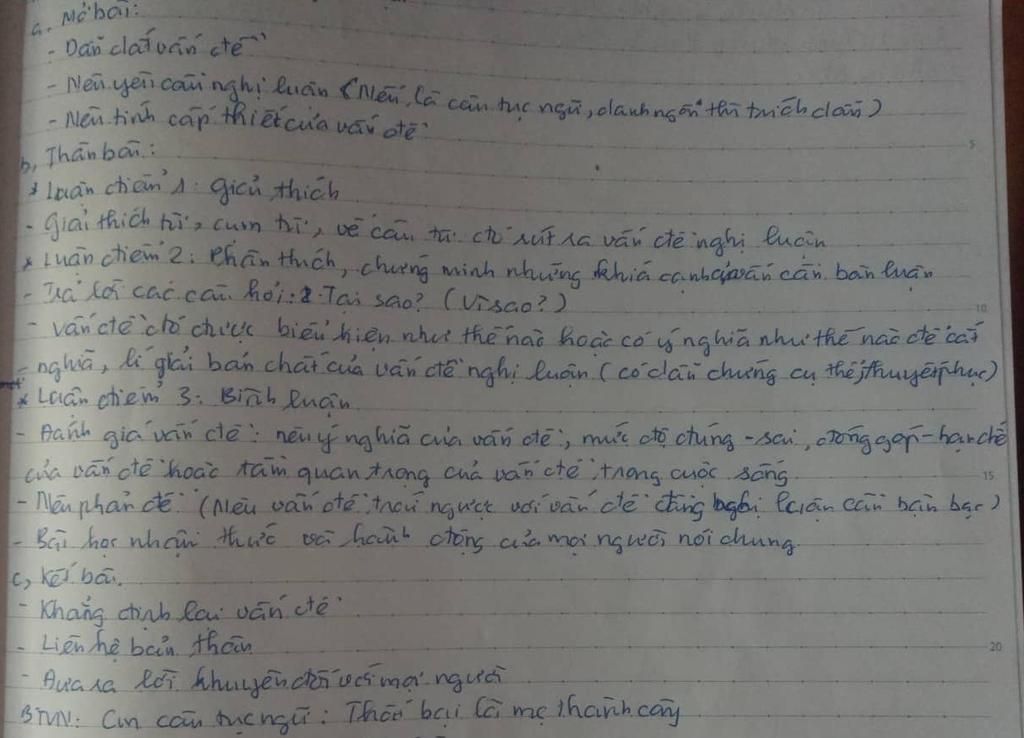 a. Mở bài:
- Dẫn dắt vấn đề
- Nêu yêu cầu nghị luận (Nếu là câu tục ngữ, danh ngôn thì trích dẫn)
- Nêu tính cấp thiết của vấn đề
b, Thân bài:
* Luận điểm 1: giải thích
- Giải thích từ, cụm từ, vế câu từ đó rút ra vấn đề nghị luận
* Luận điểm 2: Phân thích, chứng minh những khía cạnh của vấn cần bàn luận
- Trả lời các câu hỏi: Tại sao? (Vì sao?)
- Vấn đề đó được biểu hiện như thế nào hoặc có ý nghĩa như thế nào để cắt
- nghĩa, lí giải bản chất của vấn đề nghị luận (có dẫn chứng cụ thể, thuyết phục)
* Luận điểm 3: Bình luận
- Đánh giá vấn đề: nêu ý nghĩa của vấn đề, mức độ đúng - sai, đóng góp - hạn chế
của vấn đề hoặc tầm quan trọng của vấn đề trong cuộc sống
- Nêu phản đề (Nêu vấn đề trái ngược với vấn đề đang nghị luận cần bàn bạc)
- Bài học nhận thức và hành động của mọi người nói chung
c, Kết bài.
- Khẳng định lại vấn đề
- Liên hệ bản thân
- Đưa ra lời khuyên đối với mọi người
BTVN: Cm câu tục ngữ: Thất bại là mẹ thành công
5
10
15
20